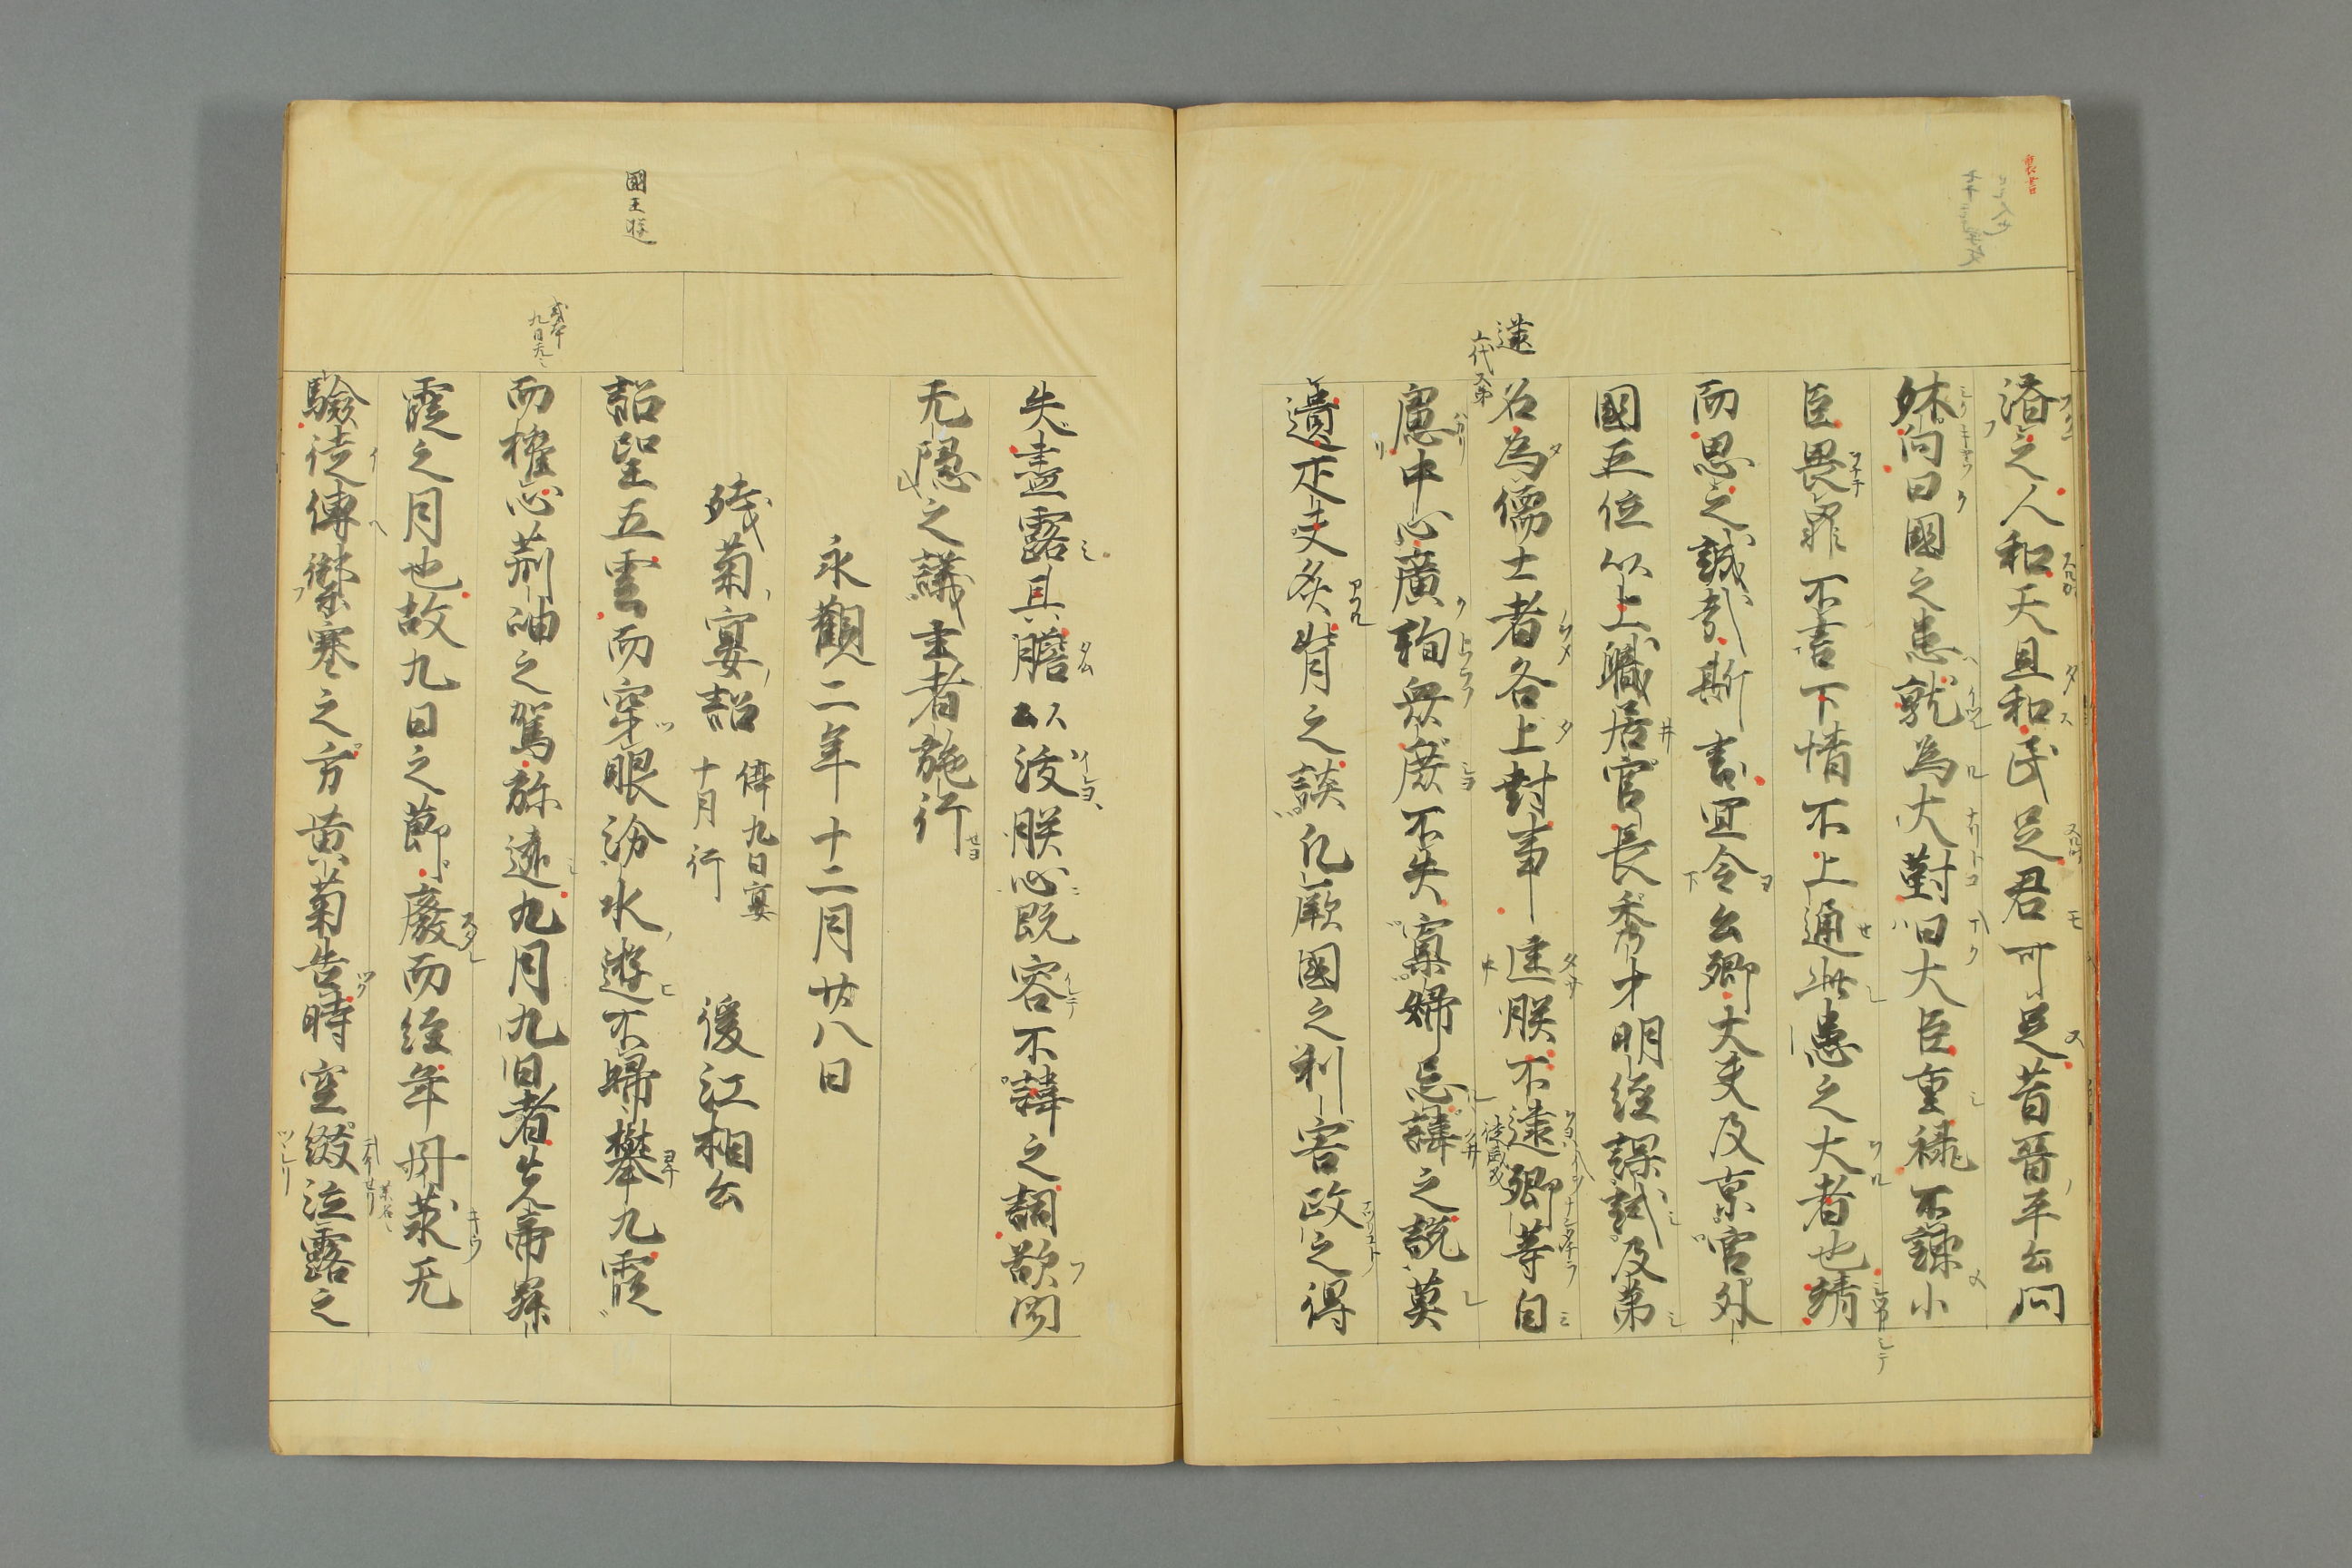 裏書
済之人和天且和民足君可足昔晋平公問
叔向曰國之患就為大對曰大臣重禄不諌小
臣畏罪不言下情不上通此患之大者也静
而思之誠哉斯言宜令公卿大夫及京官外
國五位以上職居官長秀才明経課試及第
名為儒士者各上封事匡朕不逮卿等自
慮中心廣詢衆庶不失寡婦忘諱之説莫
遺疋夫炙背之談凡厥國之利害政之得
逮
失盡露具膽以沃朕心既容不諱之詞欲聞
无隠之議主者施行
永觀二年十二月廿八日
殘菊宴詔 停九日宴 十月行 後江相公
詔望五雲而穿眼汾水遊不歸攀九霞
而摧心荊岫之駕弥遠九月九日者先帝昇
霞之月也故九日之節廢而経年丹萸无
驗徒傳禦寒之方黄菊告時空綴泣露之
國王遊
或本
九日无之